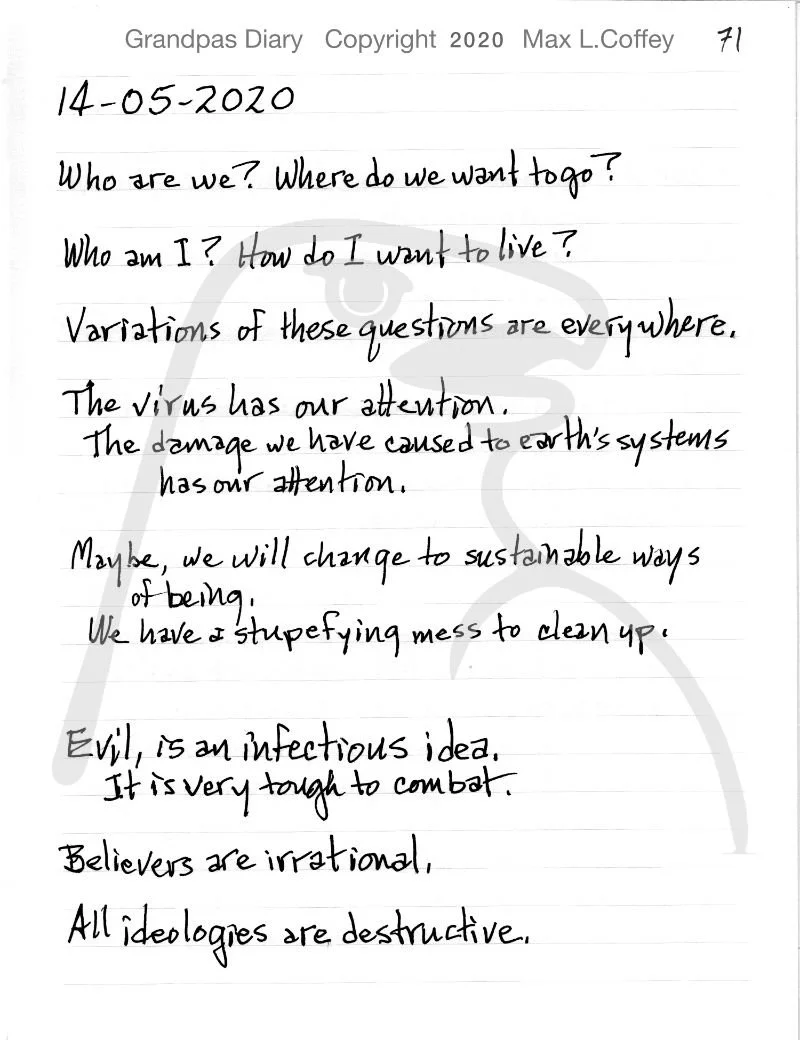 Grandpas Diary Copyright 2020 Max L.Coffey 71
14-05-2020
Who are we? Where do we want to go?
Who am I? How do I want to live?
Variations of these questions are everywhere.
The virus has our attention.
The damage we have caused to earth's systems
has our attention.
Maybe, we will change to sustainable ways
of being.
We have a stupefying mess to clean up.
Evil, is an infectious idea.
It is very tough to combat.
Believers are irrational.
All ideologies are destructive.